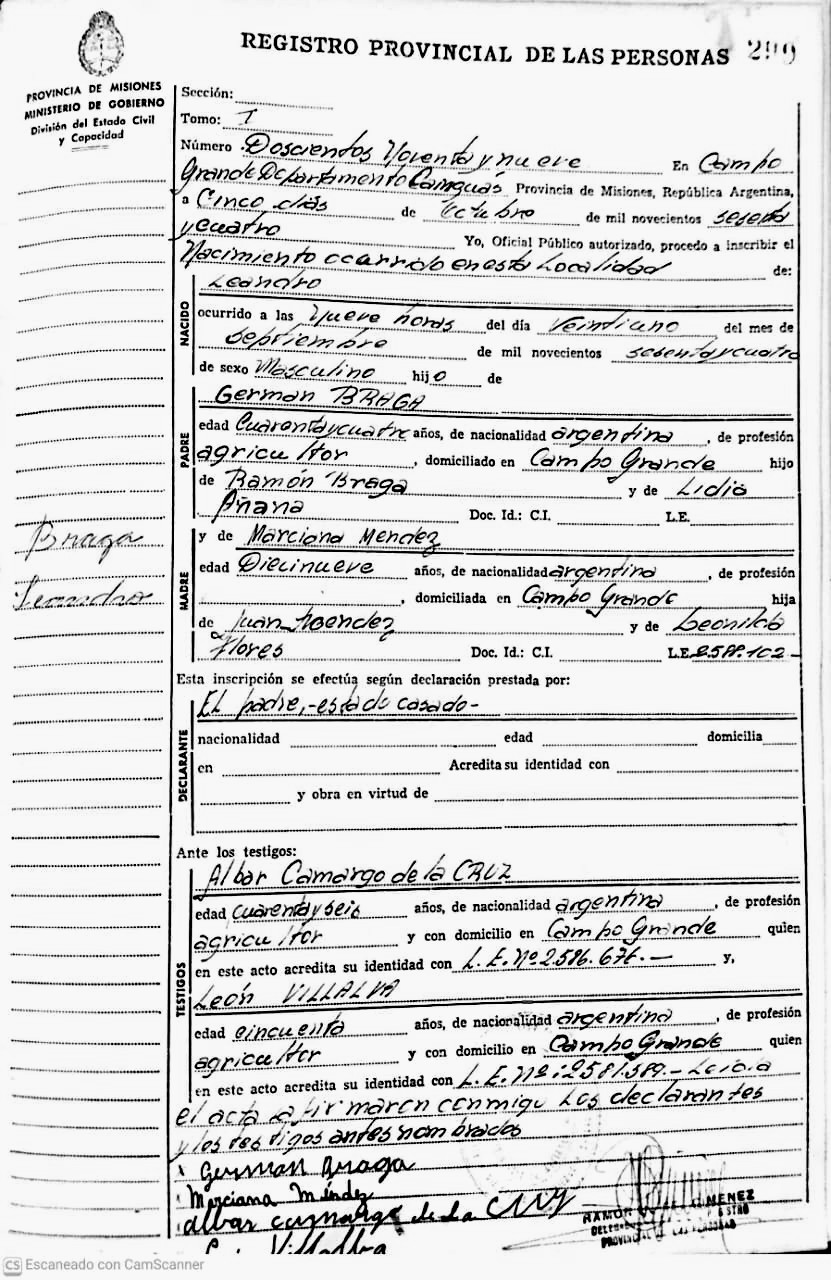 REGISTRO PROVINCIAL DE LAS PERSONAS 299
PROVINCIA DE MISIONES
MINISTERIO DE GOBIERNO
División del Estado Civil
y Capacidad
Sección:
Tomo: I
Número Doscientos Noventa y nueve En Campo
Grande Departamento Cainguás Provincia de Misiones, República Argentina,
a Cinco días de Octubre de mil novecientos sesenta
y cuatro Yo, Oficial Público autorizado, procedo a inscribir el
Nacimiento ocurrido en esta Localidad de:
NACIDO
Leandro
ocurrido a las Nueve horas del día Veintiuno del mes de
septiembre de mil novecientos sesentaycuatro
de sexo Masculino hijo de
PADRE
German BRAGA
edad Cuarentaycuatro años, de nacionalidad argentina, de profesión
agricultor, domiciliado en Campo Grande hijo
de Ramón Braga y de Lidia
Añana Doc. Id.: C.I. L.E.
Braga
Leandro
MADRE
y de Marciana Mendez
edad Diecinueve años, de nacionalidad argentina, de profesión
, domiciliada en Campo Grande hija
de Juan Mendez y de Leonilda
Flores Doc. Id.: C.I. L.E.
Esta inscripción se efectúa según declaración prestada por:
DECLARANTE
EL padre,-estado casado-
nacionalidad edad domicilia
en Acredita su identidad con
y obra en virtud de
Ante los testigos:
TESTIGOS
Albar Camargo de la CRUZ
edad cuarenta y seis años, de nacionalidad argentina, de profesión
agricultor y con domicilio en Campo Grande quien
en este acto acredita su identidad con L.E. Nº 2.586.676.— y,
León VILLALVA
edad cincuenta años, de nacionalidad argentina, de profesión
agricultor y con domicilio en Campo Grande quien
en este acto acredita su identidad con L.E. Nº: 2.581.589.- Leida
el acta la firmaron conmigo los declarantes
y los testigos antes nombrados
German Braga
Marciana Méndez
albar camargo de la Cruz
Villalba
RAMON JIMENEZ
PROVINCIAL DE LAS PERSONAS
CS Escaneado con CamScanner